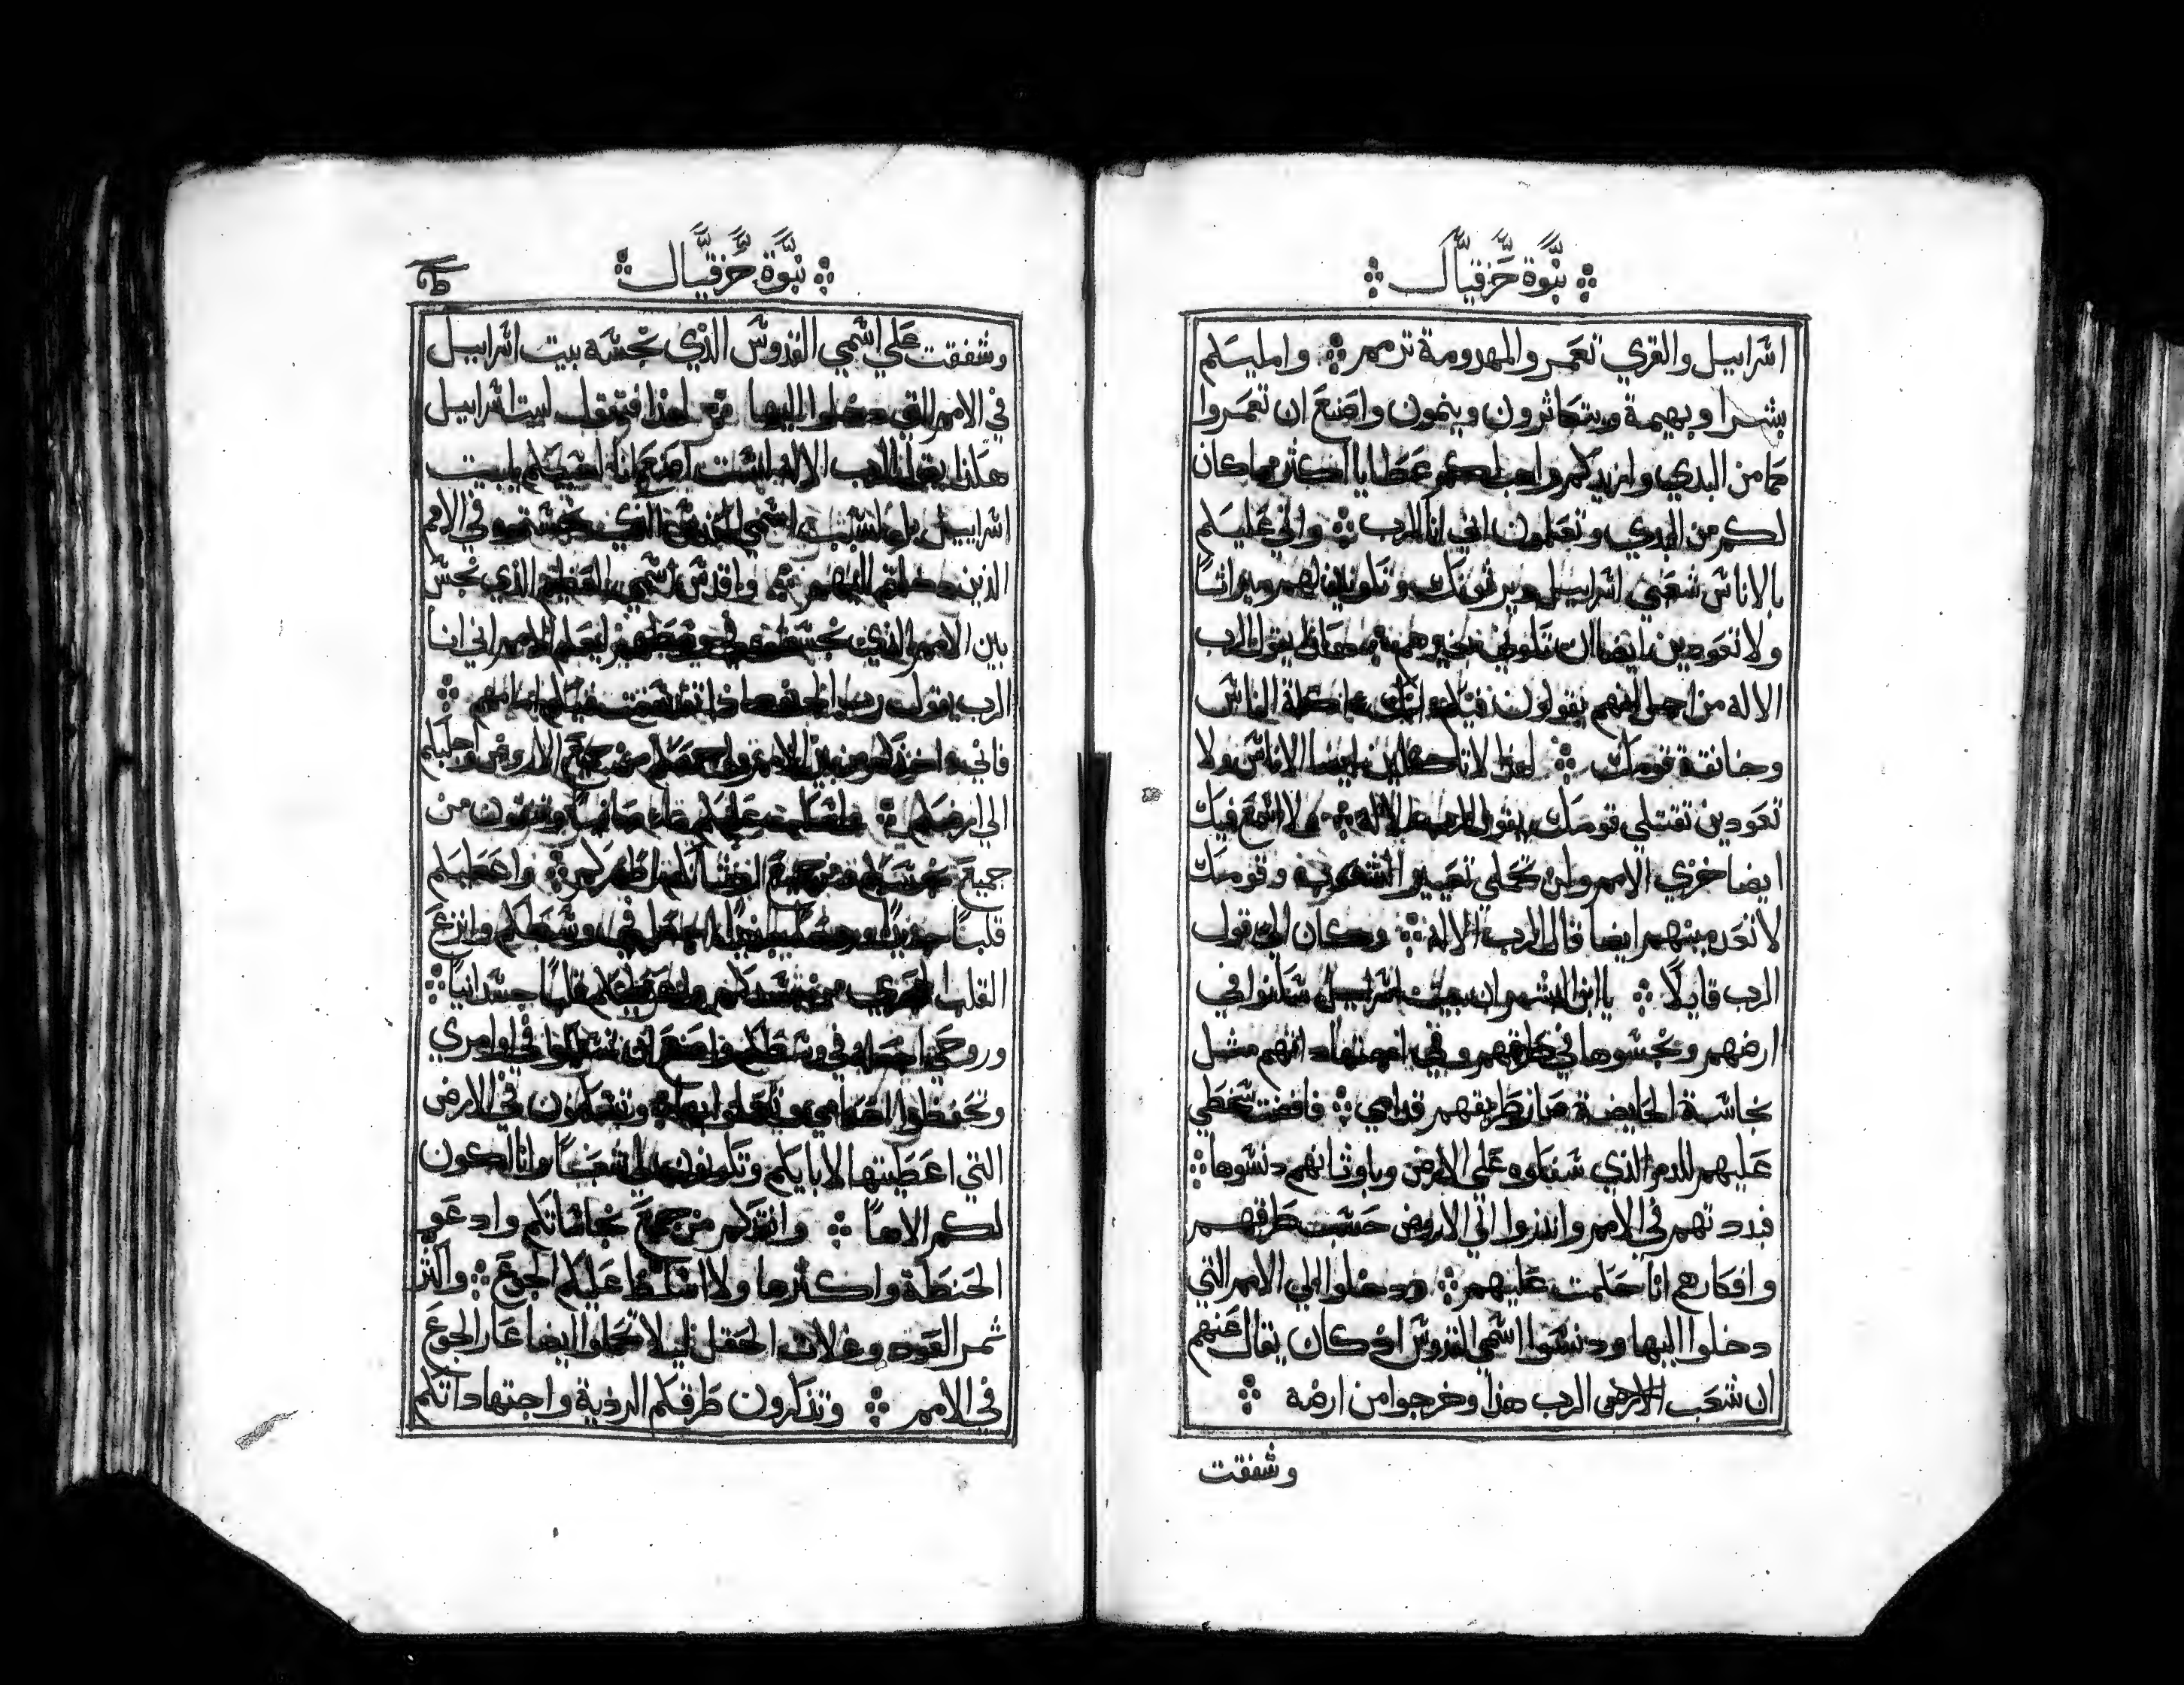 نبوة حزقيال
اسراييل والقري تعمر والمهدومة ترمم وامليكم
بشرا وبهيمة ويتكاثرون وينمون واصنع ان تعمروا
كما من البدي وازيدكم واهب لكم عطايا اكثر مما كان
لكم من البدي وتعلمون اني انا الرب واتي عليكم
بالاناس شعبي اسراييل ويرثونك وتكونين لهم ميراثا
ولا تعودين ايضا ان تكوني بغيرهم هكذا يقول الرب
الاله من اجل انهم يقولون فيكم انك اكلة الناس
وخانقة قومك لهذا لا تاكلين ايضا الاناس ولا
تعودين تقتلي قومك يقول الرب الاله ولا اسمع فيك
ايضا خزي الامم ولن تحملي تعيير الشعوب وقومك
لا تعدمينهم ايضا قال الرب الاله وكان الي قول
الرب قايلا يا ابن البشر ان بيت اسراييل سكنوا في
ارضهم ونجسوها في طرقهم وفي اجتهاداتهم مثل
نجاسة الحايضة صارت طريقهم قدامي فافضت سخطي
عليهم للدم الذي سفكوه علي الارض وباوثانهم دنسوها
فبددتهم في الامم وانذروا الي الاروض حسب طرقهم
وافكارهم انا حكمت عليهم ودخلوا الي الامم التي
دخلوا اليها ودنسوا اسمي القدوس اذ كان يقال عنهم
ان شعب الرب هذا وخرجوا من ارضه
وشفقت
نبوة حزقيال
وشفقت علي اسمي القدوس الذي نجسه بيت اسراييل
في الامم التي دخلوا اليها من اجل هذا فتقول لبيت اسراييل
هكذا يقول الرب الاله لست اصنع انا لسببكم يا بيت
اسراييل بل لسبب اسمي القدوس الذي نجستموه في الامم
الذين دخلتم اليهم واقدس اسمي العظيم الذي نجس
بين الامم الذي نجستموه في وسطهم ليعلم الامم اني انا
الرب يقول رب الجنود اذا تقدست فيكم امامهم
فاني اخذكم من بين الامم واجمعكم من جميع الاروض واجلبكم
الي ارضكم واسكب عليكم ماء صافيا وتنقون من
جميع نجساتكم ومن جميع اوثانكم اطهركم واعطيكم
قلبا جديدا وروحا جديدا اجعل في وسطكم وانزع
القلب الحجري من جسدكم واعطيكم قلبا جسدانيا
وروحي اجعل في وسطكم واصنع ان تسلكوا في اوامري
وتحفظوا احكامي وتعملوا بها وتسكنون في الارض
التي اعطيتها لابايكم وتكونون لي شعبا وانا اكون
لكم الاها وانقذكم من جميع نجاساتكم وادعو
الحنطة واكثرها ولا اسلط عليكم الجوع واكثر
ثمر العود وغلات الحقل ليلا تحملوا ايضا عار الجوع
في الامم وتذكرون طرقكم الردية واجتهاداتكم